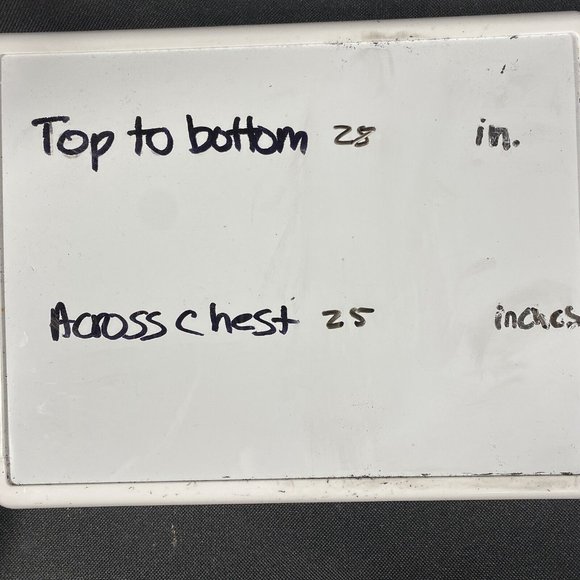 Top to bottom 28 in.
Across chest 25 inches